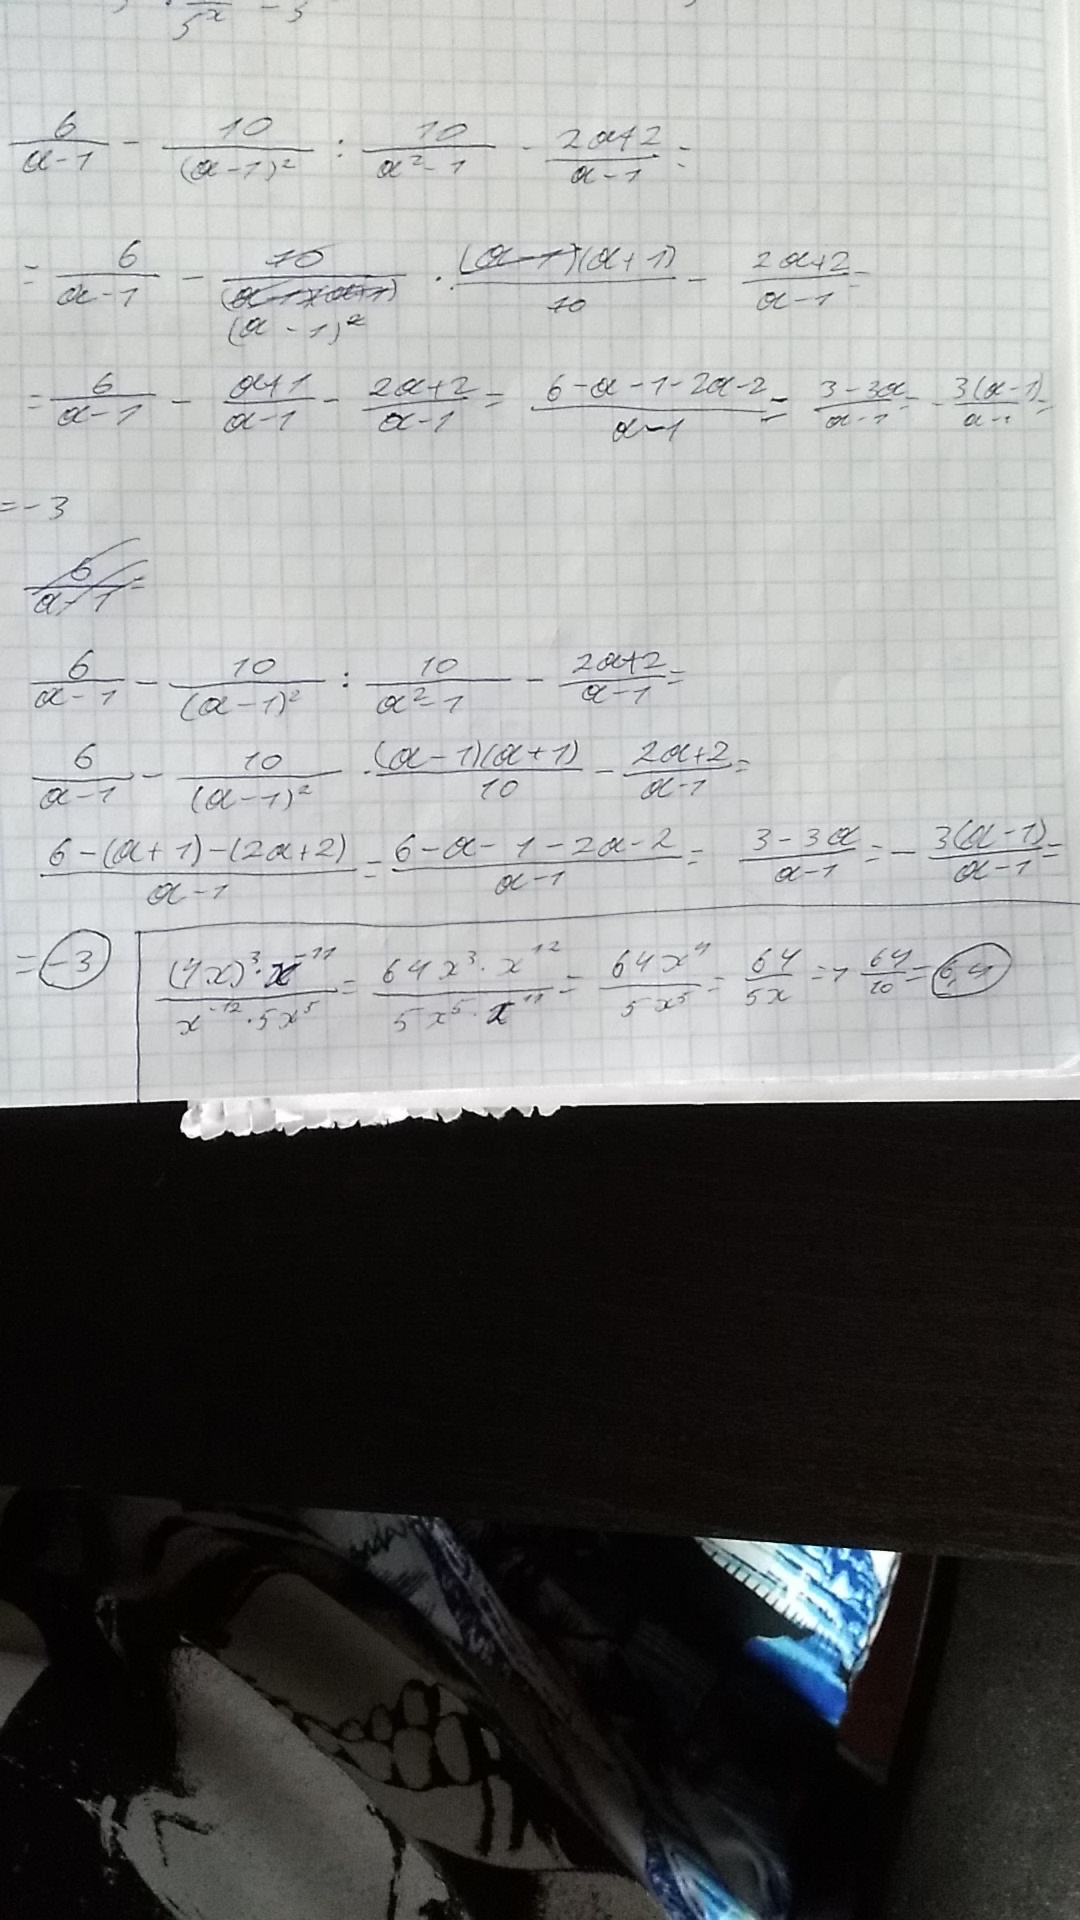 5^x - 5
6/(a-1) - 10/(a-1)² : 10/(a²-1) - (2a+2)/(a-1) =
= 6/(a-1) - 10/(a-1)² · (a-1)(a+1)/10 - (2a+2)/(a-1) =
= 6/(a-1) - (a+1)/(a-1) - (2a+2)/(a-1) = (6-a-1-2a-2)/(a-1) = (3-3a)/(a-1) = -3(a-1)/(a-1) =
= -3
6/(a-1) =
6/(a-1) - 10/(a-1)² : 10/(a²-1) - (2a+2)/(a-1) =
6/(a-1) - 10/(a-1)² · (a-1)(a+1)/10 - (2a+2)/(a-1) =
(6-(a+1)-(2a+2))/(a-1) = (6-a-1-2a-2)/(a-1) = (3-3a)/(a-1) = -3(a-1)/(a-1) =
= -3
((4x)³·x⁻¹¹)/(x⁻¹²·5x⁵) = (64x³·x¹²)/(5x⁵·x¹¹) = 64x⁴/5x⁵ = 64/5x => 64/10 = 6,4